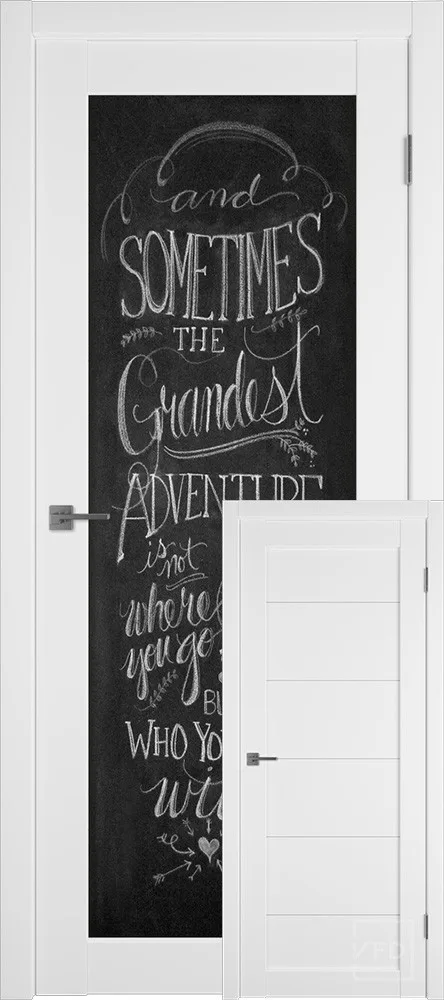 and
SOMETIMES
THE
Grandest
ADVENTURE
is
not
where
you go
BU
WHO YO
wi
VFD